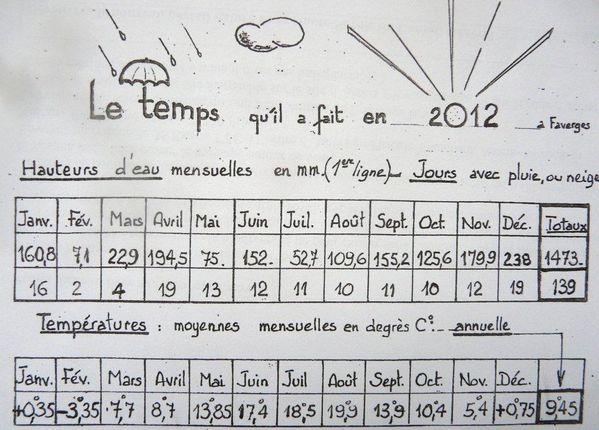 Le temps qu'il a fait en 2012 à Faverges
Hauteurs d'eau mensuelles en mm.(1ère ligne)_ Jours avec pluie, ou neige
Janv. Fév. Mars Avril Mai Juin Juil. Août Sept. Oct. Nov. Déc. Totaux
160,8 7,1 22,9 194,5 75. 152. 52,7 109,6 155,2 125,6 179,9 238 1473.
16 2 4 19 13 12 11 10 11 10 12 19 139
Températures : moyennes mensuelles en degrès C°. annuelle
Janv. Fév. Mars Avril Mai Juin Juil Août Sept. Oct. Nov. Déc.
+0°,35 -3°,35 7°,7 8°,7 13°,85 17°,4 18°,5 19°,9 13°,9 10°,4 5°,4 +0°,75 9°,45